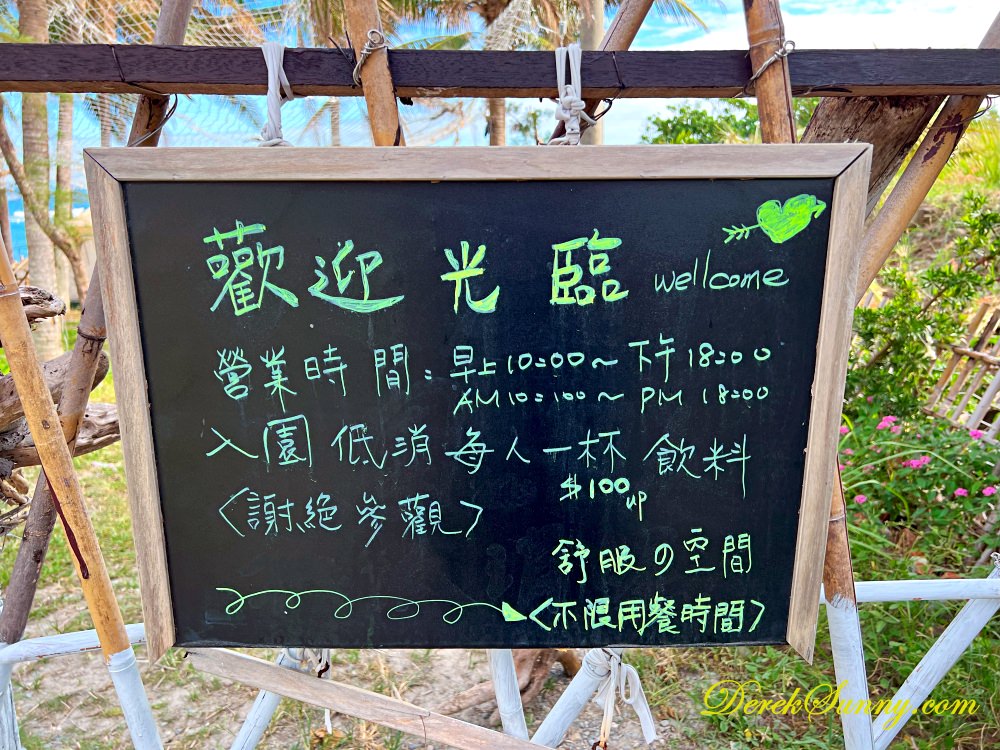 歡迎光臨 wellcome
營業時間:早上10:00~下午18:00
AM10:100~PM 18:00
入園低消每人一杯飲料
$100up
〈謝絕參觀〉
舒服の空間
〈不限用餐時間〉
DerekSunny.com